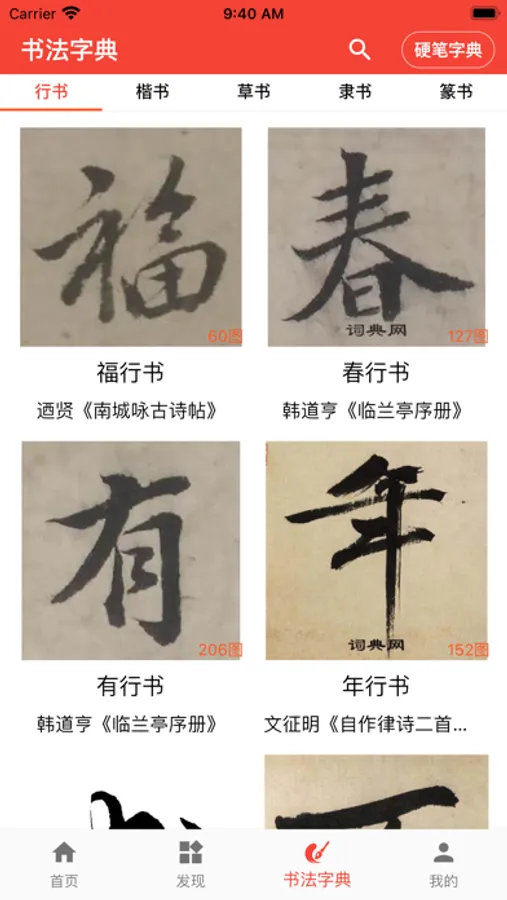 Carrier 9:40 AM
书法字典 硬笔字典
行书 楷书 草书 隶书 篆书
福 春
词典网
60图 127图
福行书 春行书
迺贤《南城咏古诗帖》 韩道亨《临兰亭序册》
有 年
词典网
206图 152图
有行书 年行书
韩道亨《临兰亭序册》 文征明《自作律诗二首...
首页 发现 书法字典 我的